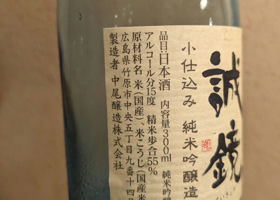 誠鏡
小仕込み 純米吟醸造
品目 日本酒 内容量300ml 純米吟醸
アルコール分15度 精米歩合55%
原材料名 米(国産)、米こうじ(国産米
広島県竹原市中央五丁目九番十四
製造者 中尾醸造株式会社